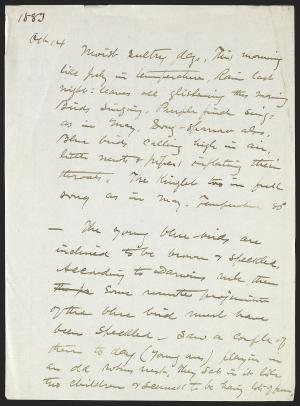 1883
Oct. 14
Moist sultry day. This morning
like July in temperature. Rain last
night: leaves all glistening this morning
Birds singing. Purple finch sings
as in May. Song-sparrow also,
Blue birds calling high in air,
little newts (pipers) inflating their
throats. The Kinglet too in full
song as in May. Temperature 80°
— The young blue-birds are
inclined to be brown & speckled,
According to Darwins rule, then
some remote progenitor
of the blue bird must have
been speckled — Saw a couple of
them to day (young ones) playing in
an old robins nest, They sat in it like
two children & seemed to be having lots of fun